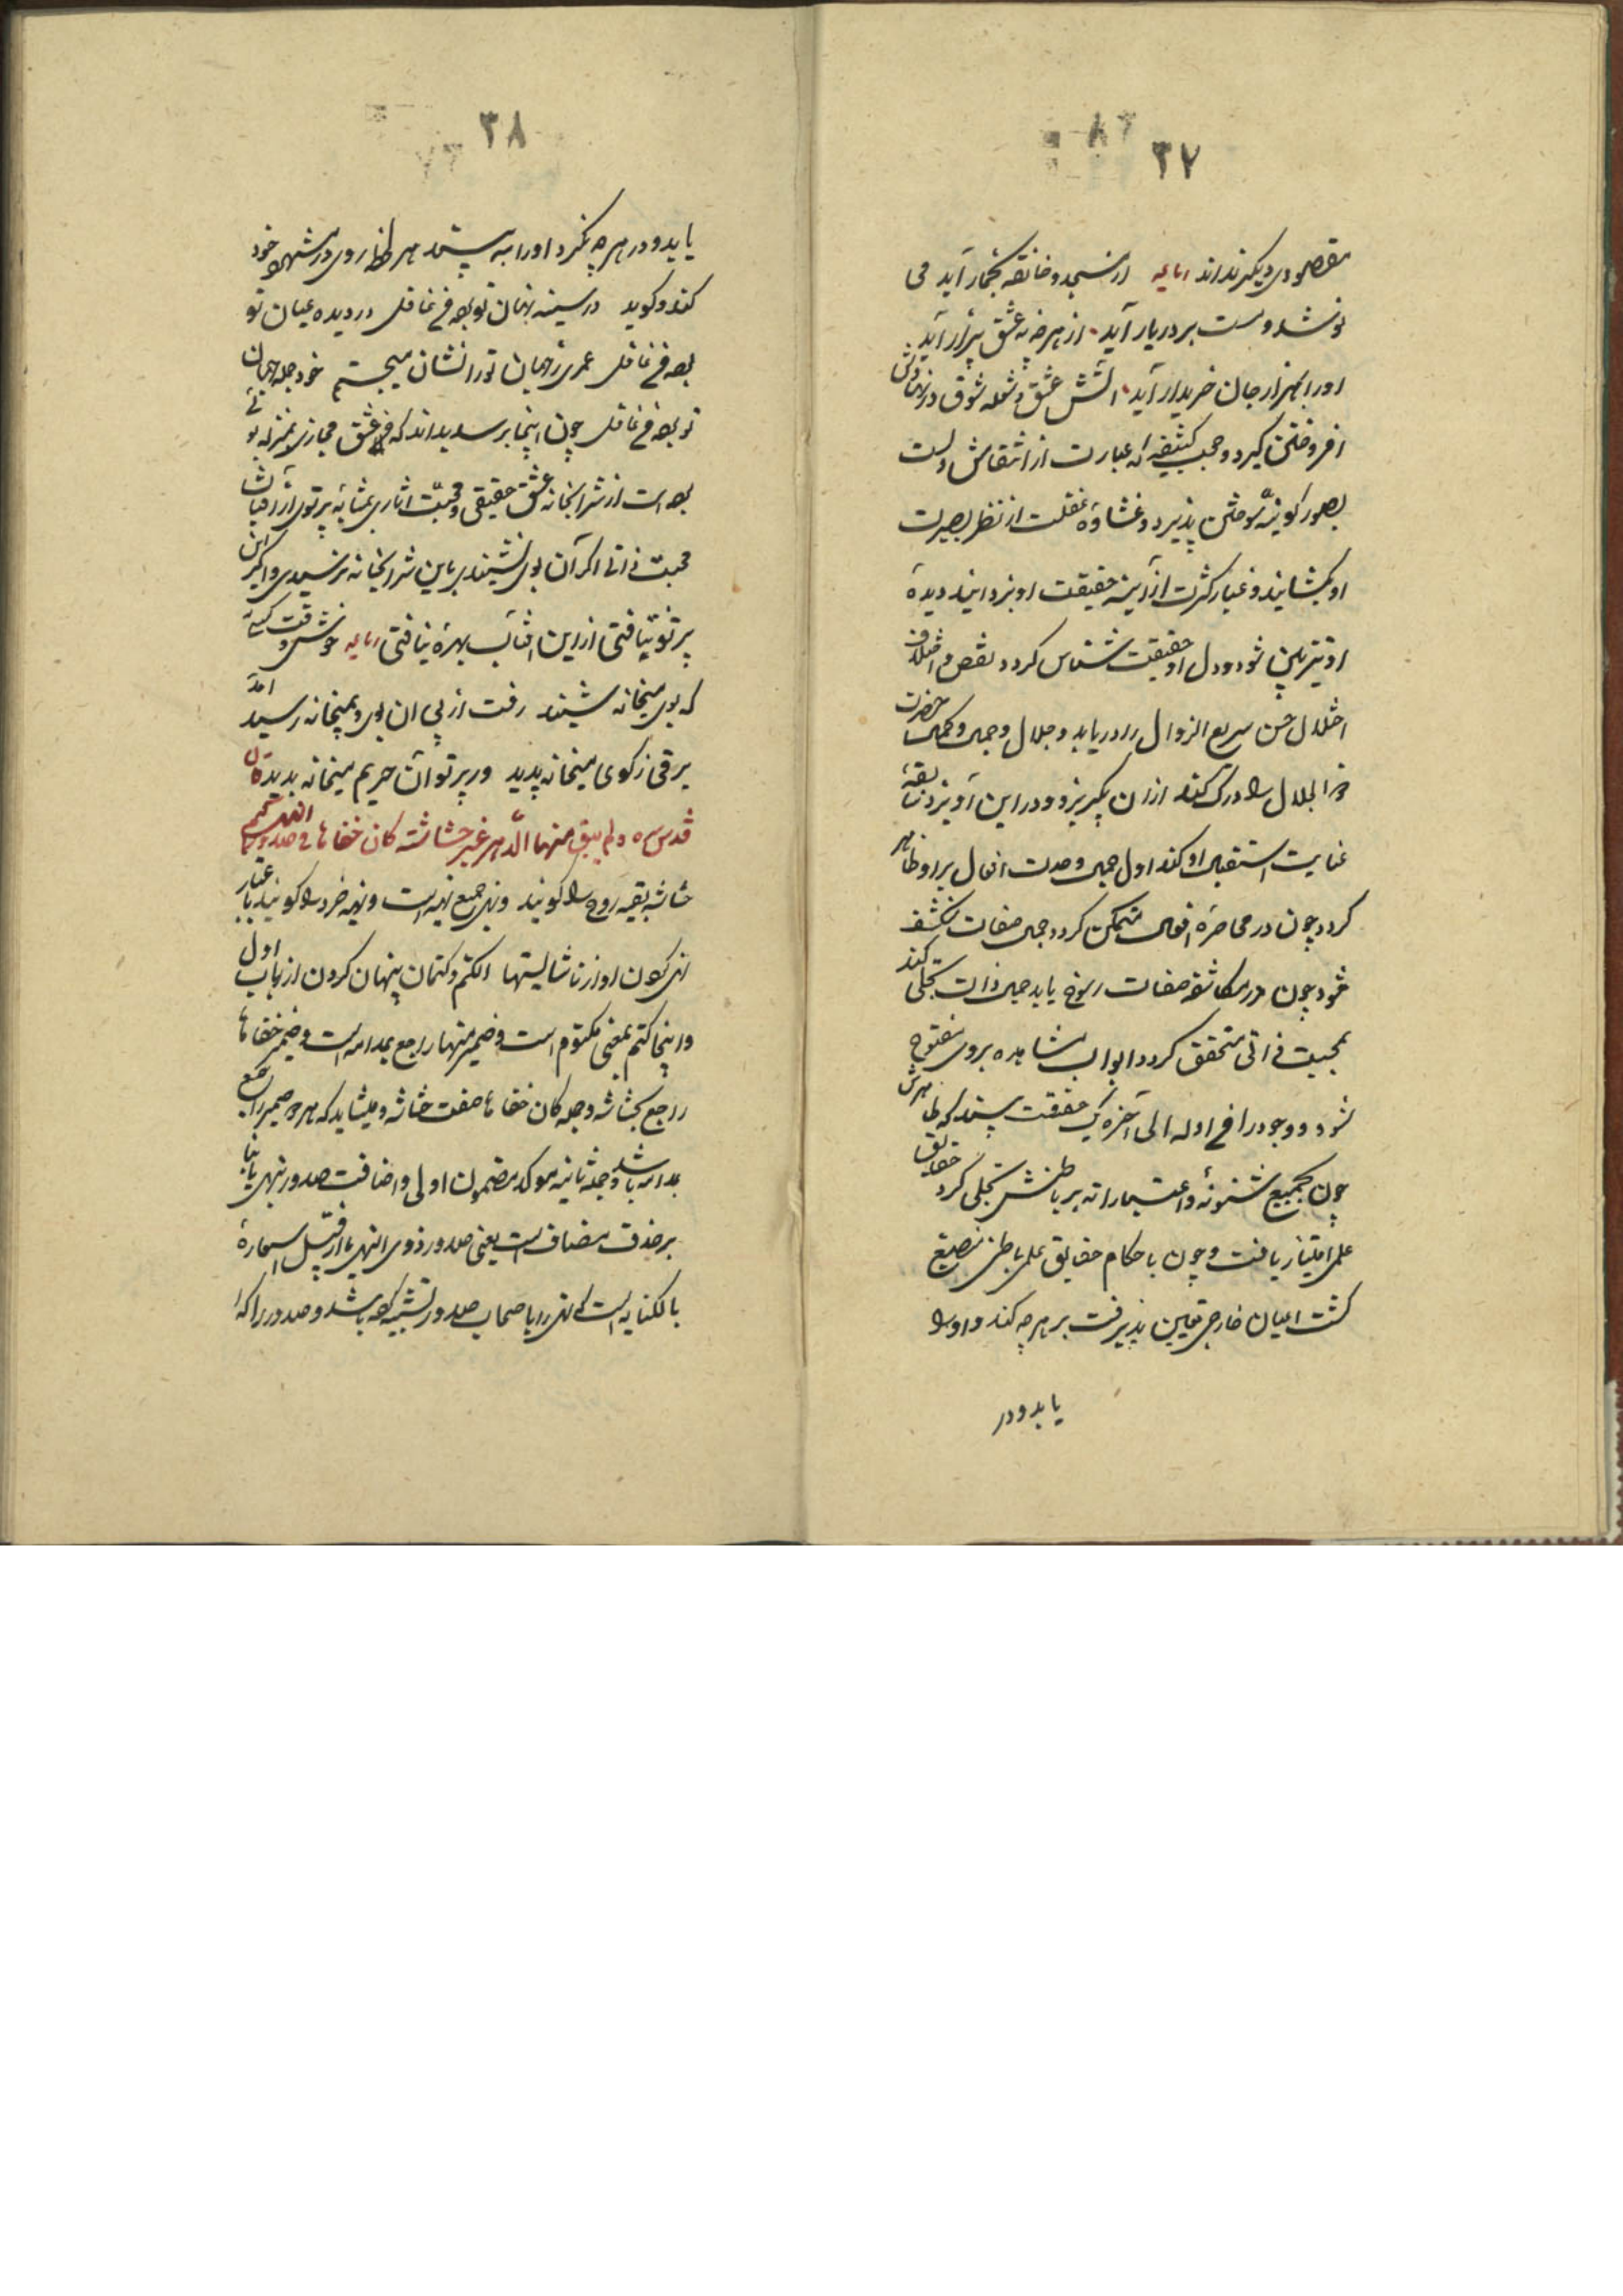 ۳۷
مقصودی دیگر نداند رباعیه از مسجد و خانقه بخمار آید می
نوشد و مست بر در یار آید از هر چه نه عشق بیزار آید
او را بهزار جان خریدار آید آتش عشق و شعله شوق در نهادش
افروختن گیرد و حجب کثیفه که عبارت از انتقاش اوست
بصور کونیه سوختن پذیرد و غشاوه غفلت از نظر بصیرت
او بکشایند و غبار کثرت از آینه حقیقت او بزدایند دیدهٔ
او تیزبین شود و دل او حقیقت شناس کردد نقص و اختلاف
اختلال حسن سریع الزوال را دریابد و جلال و جمال و کمال حضرت
ذو الجلال را درک کند ازان بگریزد و در این آویزد سابقهٔ
عنایت استقبال او کند اول جمال وحدت افعال بر او ظاهر
کردد چون در محاضرهٔ افعال متمکن کردد جمال صفات منکشف
شود چون در مکاشفه صفات رسوخ یابد جمال ذات تجلی کند
بمحبت ذاتی متحقق کردد ابواب مشاهده بروی مفتوح
شود و وجود را فی اوله الی آخره یک حقیقت بیند که ظاهرش
چون بجمیع شئونه و اعتباراته بر باطنش تجلی کرد حقایق
علمی امتیاز یافت و چون باحکام حقایق علمی باطن منصبغ
کشت اعیان خارجی تعین پذیرفت بر هر چه کند او را
یابد و در
۳۸
یابد و در هر چه نکرد او را به بیند هر لحظه روی در مشهود خود
کند و کوید در سینه نهان تو بودی غافل در دیده عیان تو
بودی غافل عمری ز جهان تو را نشان میجستم خود جمله جهان
تو بودی غافل چون اینجا برسد بداند که عشق مجازی بمنزله بوئی
بود است از شرابخانه عشق حقیقی و محبت آثاری بمثابه پرتوی از آفتاب
محبت ذاتی اگر آن بوی نشنیدی باین شرابخانه نرسیدی و اگر این
پرتو نیافتی از این آفتاب بهرهٔ نیافتی رباعیه خوش وقت کسی
که بوی میخانه شنید رفت از پی آن بوی و بمیخانه رسید آمد
برقی ز کوی میخانه پدید در پرتو آن حریم میخانه بدید قال
قدس سره و لم یبق منها الدهر غیر حشاشة کان خفاها فی صدور النهی کتم
حشاشه بقیه روح را کویند و نهی جمع نهیه است و نهیه خرد را کویند باعتبار
نهی کردن او از ناشایستها الکتم و کتمان پنهان کردن از باب اول
و اینجا کتم بمعنی مکتوم است و ضمیر منها راجع بمدامه است و ضمیر خفاها
راجع بحشاشه و جمله کان خفاها صفت حشاشه و میشاید که هر دو ضمیر راجع
بمدامه باشد و جمله ثانیه موکد مضمون اولی و اضافت صدور بنهی یا بنا
بر حذف مضاف است یعنی صدور ذوی النهی یا از قبیل استعارهٔ
بالکنایه است که نهی را با صحاب صدور تشبیه کرده باشد و صدور را که